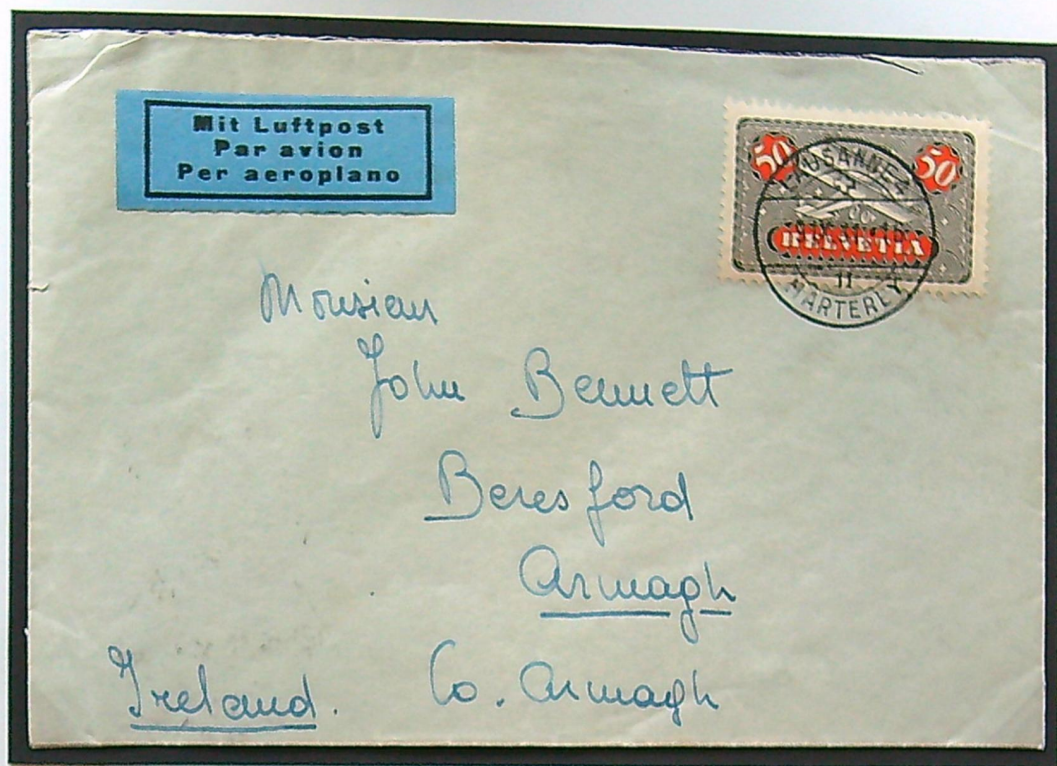 Mit Luftpost
Par avion
Per aeroplano
50 50
HELVETIA
LAUSANNE 4
II
MARTEREY
Monsieur
John Bennett
Beresford
Armagh
Co. Armagh
Ireland.